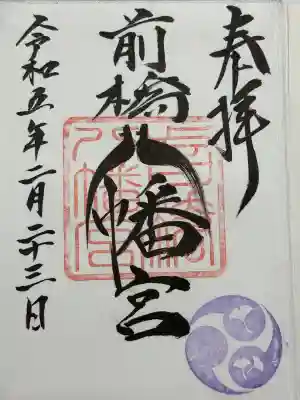 奉拝
前橋八幡宮
令和五年二月二十三日